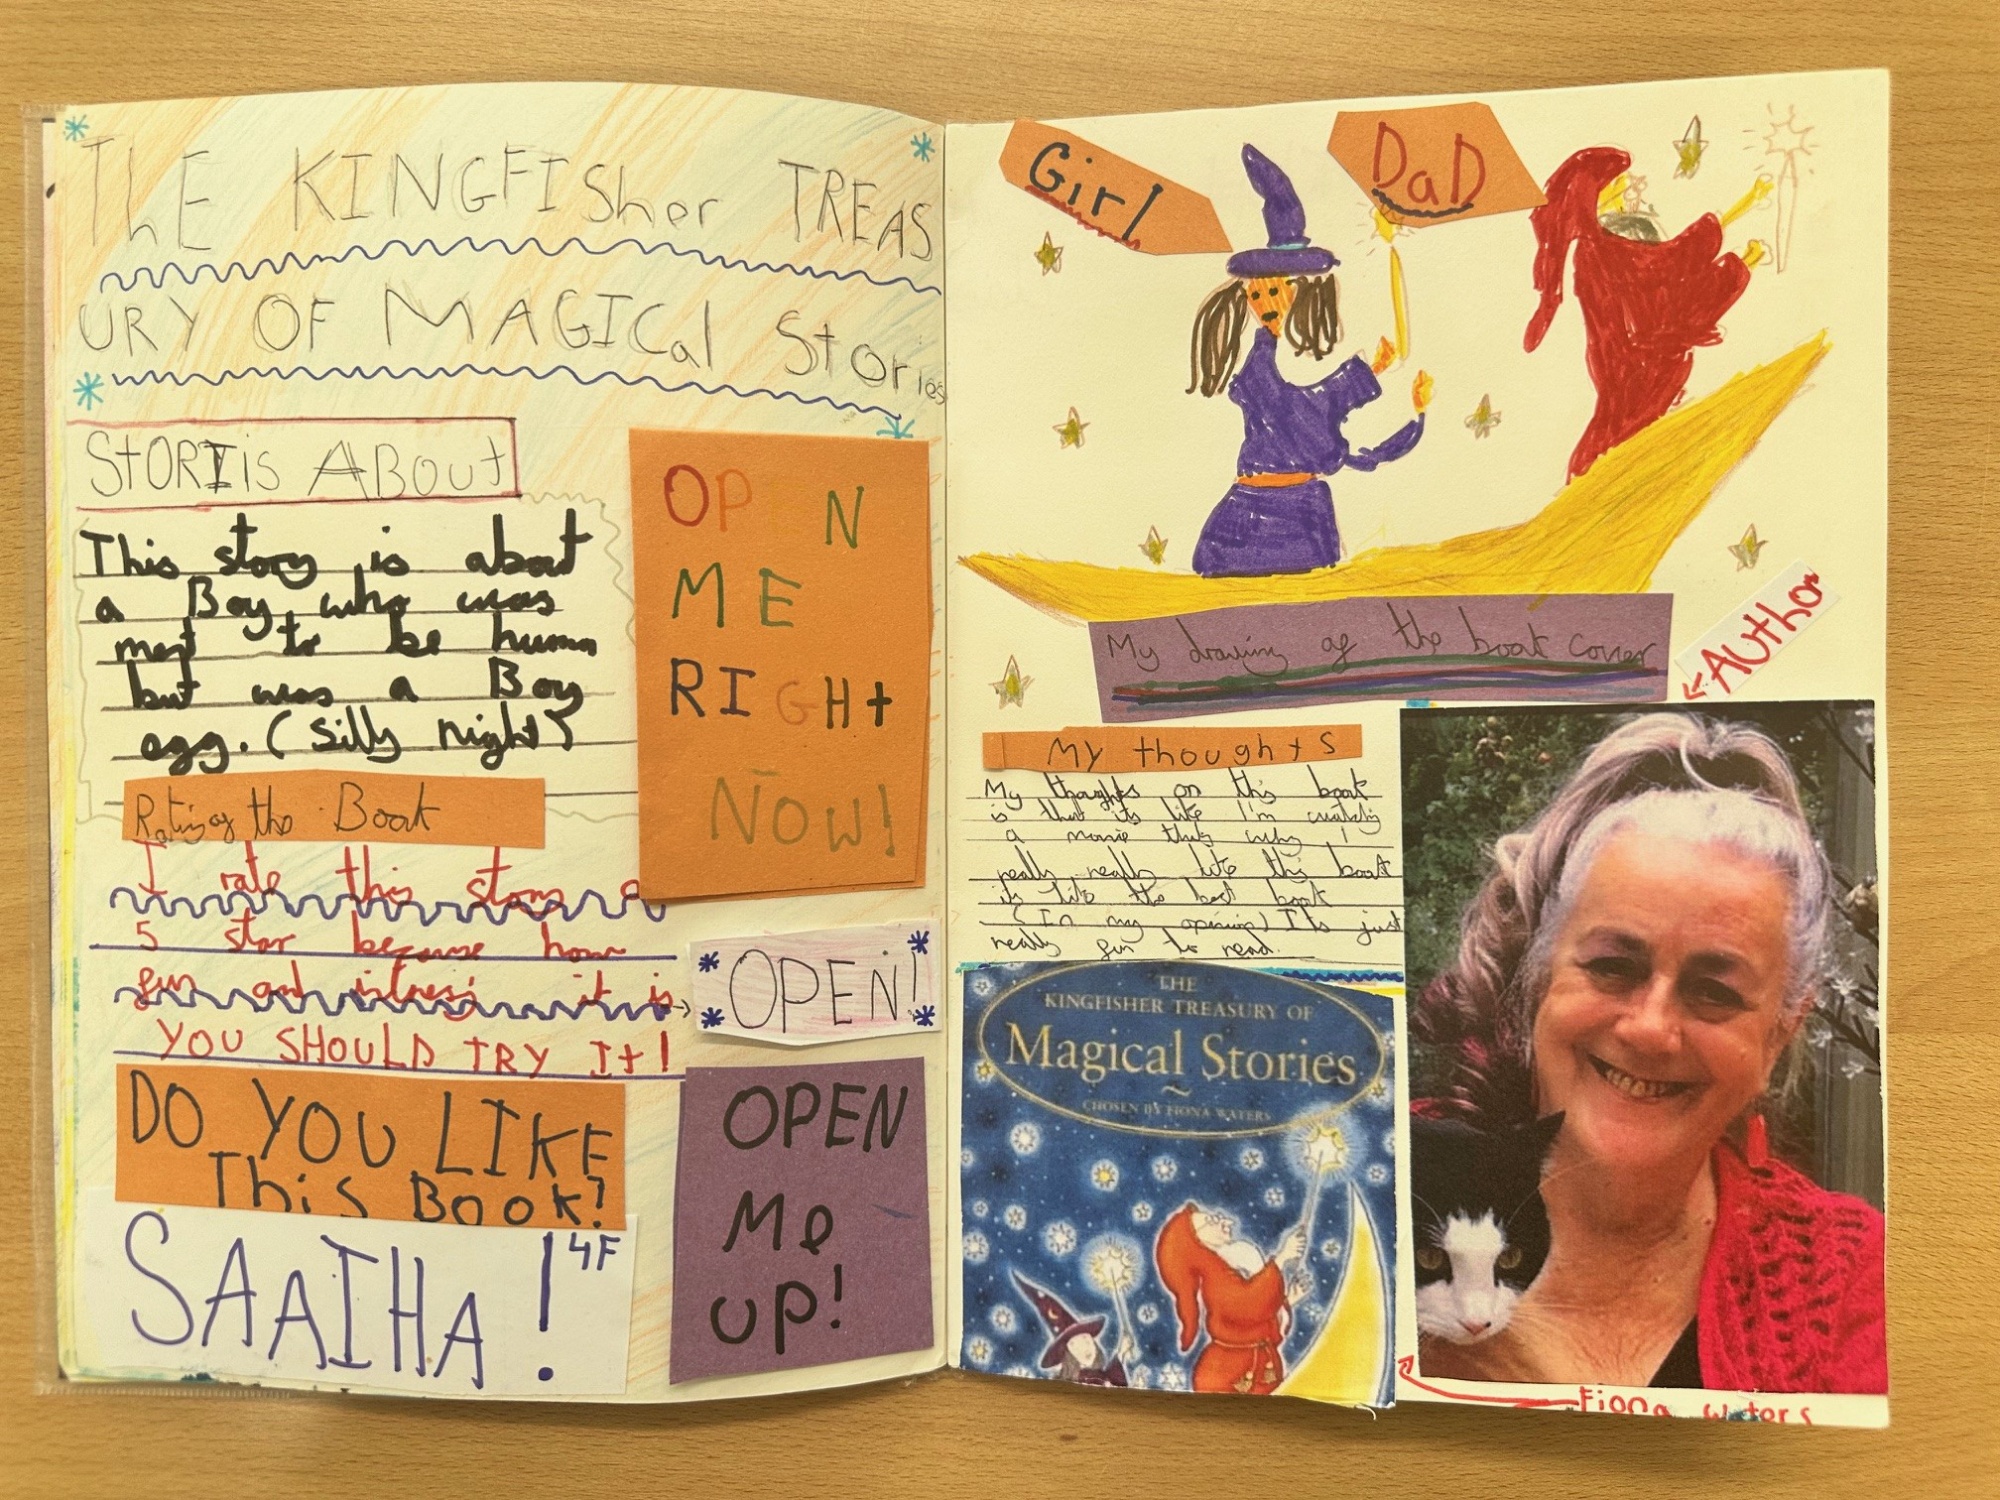 ThE KINGFISher TREAS
URY OF MAGICal Stories
StORIis ABOut
This story is about
a Boy, who was
ment to be human
but was a Boy
egg. (Silly night)
Rating of the Book
I rate this story a
5 star because how
fun and intresi it is
YOU SHOULD TRY It!
DO YOU LIKE
This BOOK?
SAAIHA! 4F
OPEN
ME
RIGHt
NOW!
OPEN!
OPEN
Me
UP!
Girl
DaD
My drawing of the book cover
AUthor
My thoughts
My thoughts on this book
is that its like I'm watching
a movie thats why I
really really like this book
its like the best book
(In my opening) Its just
really fun to read.
THE
KINGFISHER TREASURY OF
Magical Stories
CHOSEN BY FIONA WATERS
Fiona waters